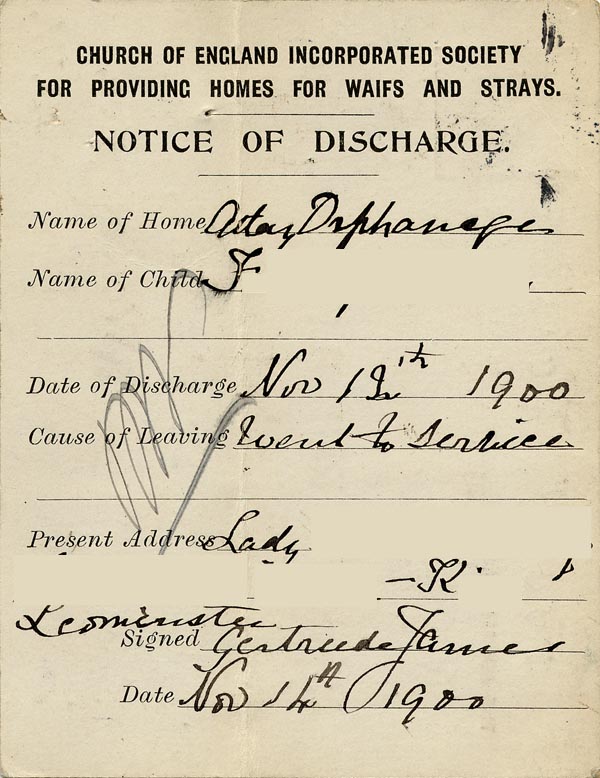 CHURCH OF ENGLAND INCORPORATED SOCIETY
FOR PROVIDING HOMES FOR WAIFS AND STRAYS.
NOTICE OF DISCHARGE.
Name of Home Orphanage
Name of Child F
Date of Discharge Nov 12th 1900
Cause of Leaving Went to Service
Present Address Lady
K
Leominster
Signed Gertrude James
Date Nov 14th 1900